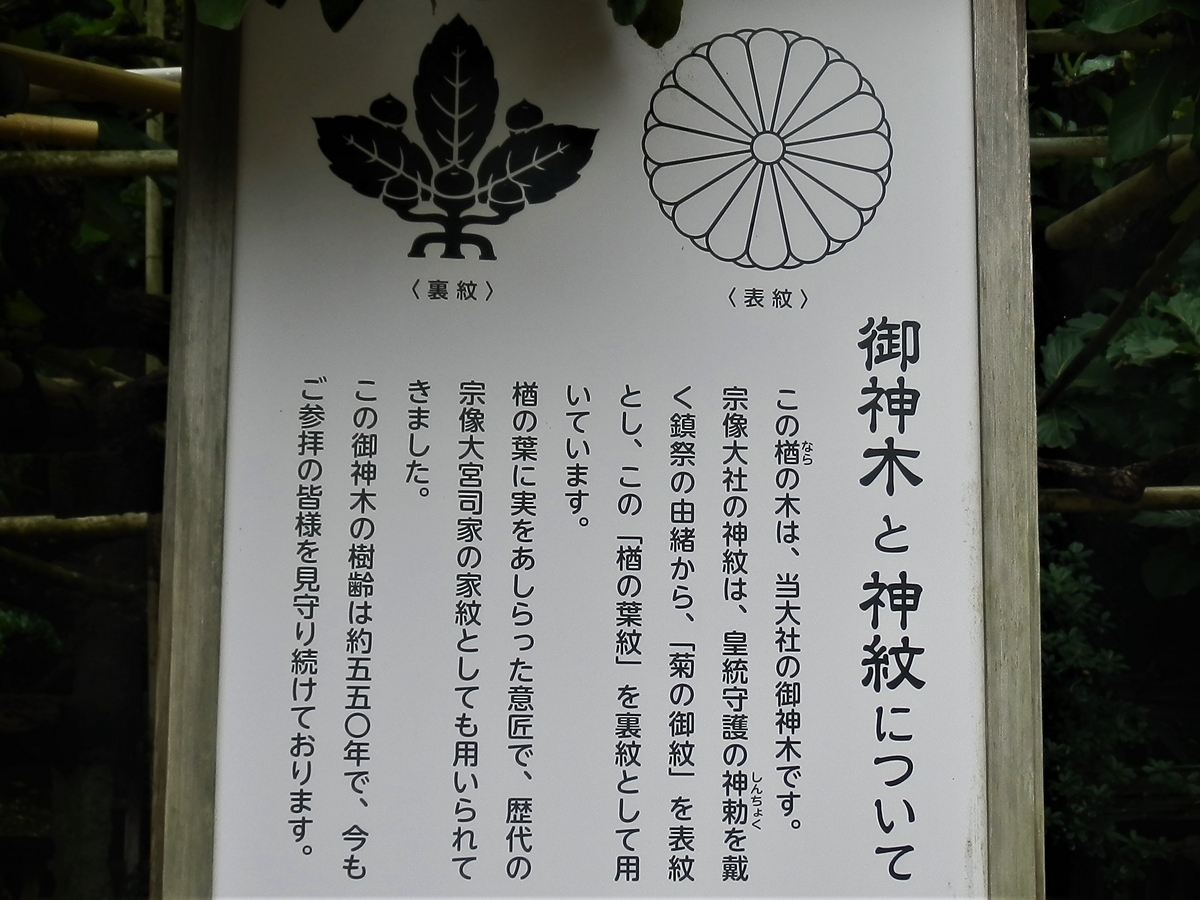 御神木と神紋について
〈表紋〉
〈裏紋〉
この楢の木は、当大社の御神木です。
なら
宗像大社の神紋は、皇統守護の神勅を戴
しんちょく
く鎮祭の由緒から、「菊の御紋」を表紋
とし、この「楢の葉紋」を裏紋として用
いています。
楢の葉に実をあしらった意匠で、歴代の
宗像大宮司家の家紋としても用いられて
きました。
この御神木の樹齢は約五五〇年で、今も
ご参拝の皆様を見守り続けております。